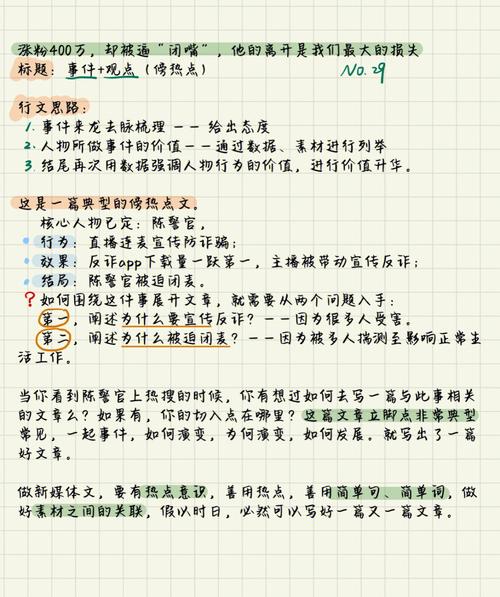 涨粉400万，却被逼“闭嘴”，他的离开是我们最大的损失
标题：事件+观点（傍热点） No.29
行文思路：
1. 事件来龙去脉梳理——给出态度
2. 人物所做事件的价值——通过数据、素材进行列举
3. 结尾再次用数据强调人物行为的价值，进行价值升华。
这是一篇典型的傍热点文。
核心人物已定：陈警官，
行为：直播连麦宣传防诈骗；
效果：反诈app下载量一跃第一，主播被带动宣传反诈；
结局：陈警官被迫闭麦。
?如何围绕这件事展开文章，就需要从两个问题入手：
第一，阐述为什么要宣传反诈？——因为很多人受害。
第二，阐述为什么被迫闭麦？——因为被多人揣测至影响正常生
活工作。
当你看到陈警官上热搜的时候，你有想过如何去写一篇与此事相关
的文章么？如果有，你的切入点在哪里？这篇文章立脚点非常典型
常见，一起事件，如何演变，为何演变，如何发展。就写出了一篇
好文章。
做新媒体文，要有热点意识，善用热点，善用简单句、简单词，做
好素材之间的关联，假以时日，必然可以写好一篇又一篇文章。